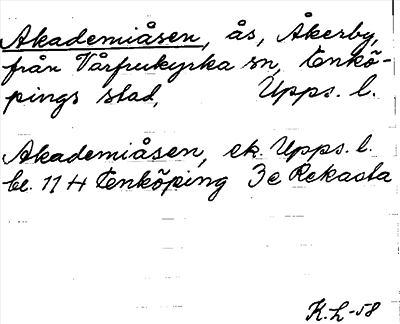 Akademiåsen, ås, Åkerby,
från Vårfrukyrka sn, Enkö-
pings stad, Upps. l.
Akademiåsen, ek. Upps. l.
bl. 114 Enköping 3e Rekasta
K.L-58